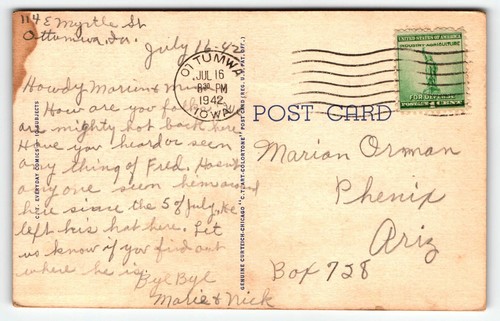 114 E Myrtle St
Ottumwa, Ia.
July 16-42
Howdy Marion &
How are you folks
are mighty hot back here
Have you heard or seen
any thing of Fred. Hasn't
any one seen him around
here since the 5 of July. He
left his hat here. Let
us know if you find out
where he is.
Bye Bye
Marie & Nick
C.T. EVERYDAY COMICS 10 SUBJECTS
OTTUMWA
JUL 16
8 30 PM
1942
IOWA
UNITED STATES OF AMERICA
INDUSTRY AGRICULTURE
FOR DEFENSE
POSTAGE 1 CENT
POST CARD
GENUINE CURTEICH-CHICAGO "C.T. ART-COLORTONE" POST CARD (REG. U.S. PAT. OFF.)
Marian Orman
Phenix
Ariz
Box 728